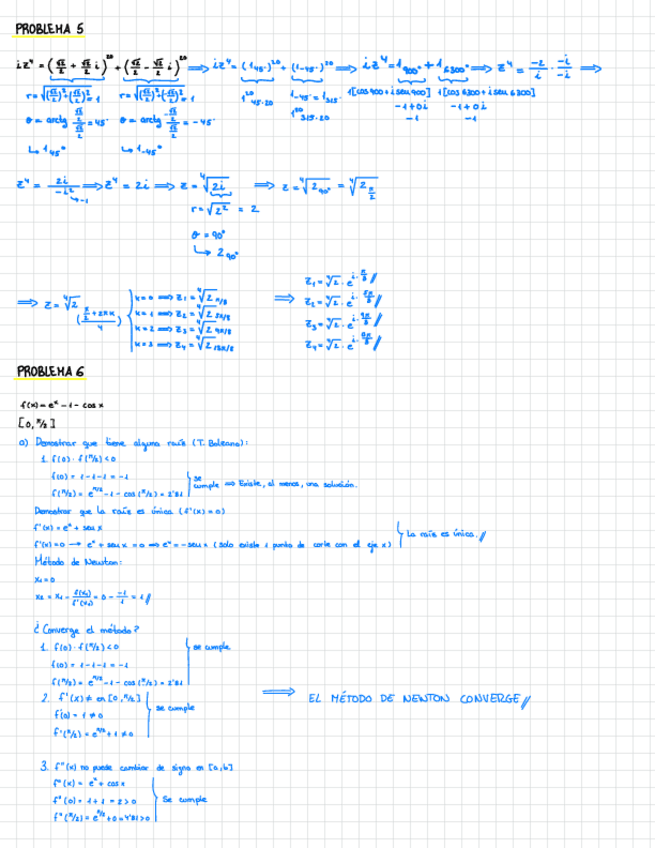 PROBLEMA 5
iz⁴ = (√2/2 + √2/2 i)²⁰ + (√2/2 - √2/2 i)²⁰ ⟹ iz⁴ = (1₄₅°)²⁰ + (1₋₄₅°)²⁰ ⟹ iz⁴ = 1₉₀₀° + 1₆₃₀₀° ⟹ z⁴ = -2/i · -i/-i ⟹
r = √((√2/2)² + (√2/2)²) = 1 r = √((√2/2)² + (√2/2)²) = 1 1²⁰ 45·20 1₋₄₅° = 1₃₁₅° 1[cos 900 + i seu 900] 1[cos 6300 + i seu 6300]
θ = arctg (√2/2)/(√2/2) = 45° θ = arctg (-√2/2)/(√2/2) = -45° 1²⁰ 315·20 -1+0i -1+0i
-1 -1
↳ 1₄₅° ↳ 1₋₄₅°
z⁴ = 2i/-i² ⟹ z⁴ = 2i ⟹ z = ⁴√2i ⟹ z = ⁴√2₉₀° = ⁴√2 π/2
↳ -1
r = √2² = 2
θ = 90°
↳ 2₉₀°
⟹ z = ⁴√2 ((π/2 + 2πk)/4)
k=0 ⟹ z₁ = ⁴√2 π/8
k=1 ⟹ z₂ = ⁴√2 5π/8
k=2 ⟹ z₃ = ⁴√2 9π/8
k=3 ⟹ z₄ = ⁴√2 13π/8
⟹
z₁ = ⁴√2 · e^(i·π/8) //
z₂ = ⁴√2 · e^(i·5π/8) //
z₃ = ⁴√2 · e^(i·9π/8) //
PROBLEMA 6
f(x) = eˣ - 1 - cos x
[0, π/2]
a) Demostrar que tiene alguna raíz (T. Bolzano):
1. f(0) · f(π/2) < 0
f(0) = 1-1-1 = -1
f(π/2) = e^(π/2) - 1 - cos(π/2) = 2'81
se cumple ⟹ Existe, al menos, una solución.
Demostrar que la raíz es única (f'(x)=0)
f'(x) = eˣ + seu x
f'(x) = 0 → eˣ + seu x = 0 ⟹ eˣ = -seu x (solo existe 1 punto de corte con el eje x)
La raíz es única. //
Método de Newton:
x₁ = 0
x₂ = x₁ - f(x₁)/f'(x₁) = 0 - -1/1 = 1 //
¿Converge el método?
1. f(0) · f(π/2) < 0
f(0) = 1-1-1 = -1
f(π/2) = e^(π/2) - 1 - cos(π/2) = 2'81
se cumple
2. f'(x) ≠ en [0, π/2]
f(0) = 1 ≠ 0
f'(π/2) = e^(π/2) + 1 ≠ 0
se cumple
⟹ EL MÉTODO DE NEWTON CONVERGE //
3. f''(x) no puede cambiar de signo en [a,b]
f''(x) = eˣ + cos x
f''(0) = 1+1 = 2 > 0
f''(π/2) = e^(π/2) + 0 = 4'81 > 0
Se cumple